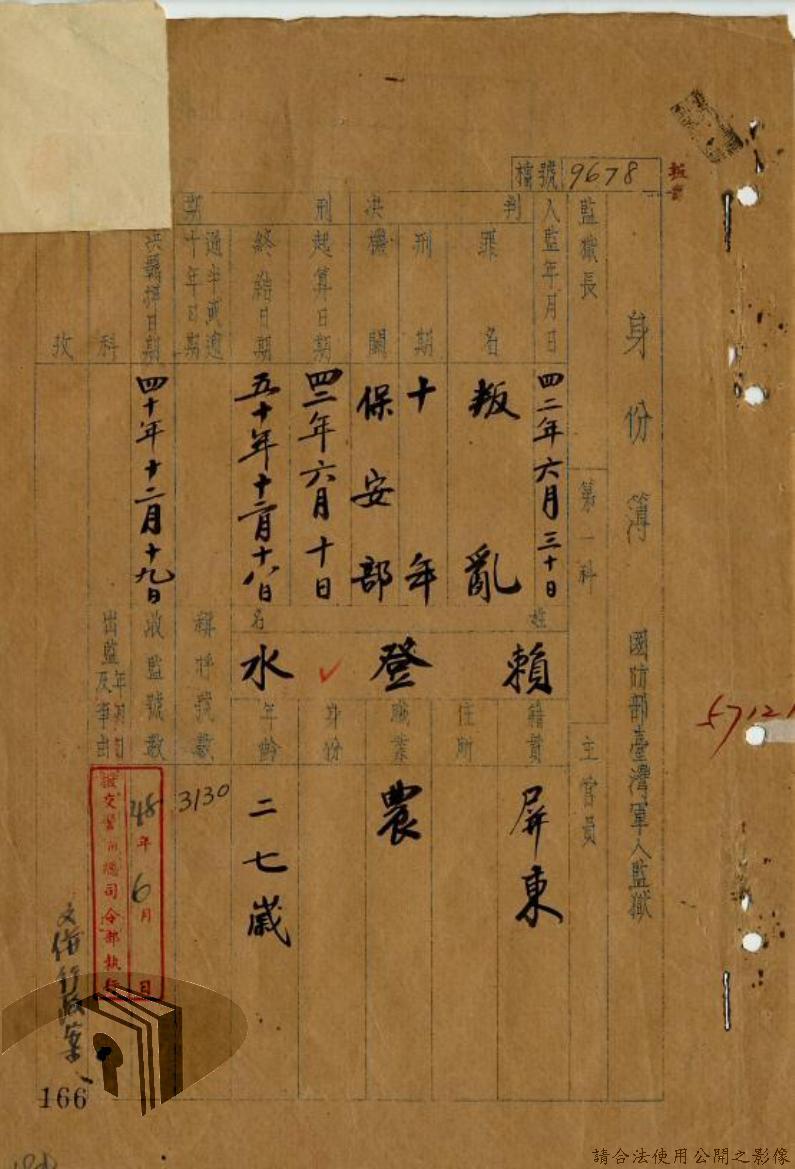 檔號 9678
身份簿 國防部臺灣軍人監獄
監獄長 第一科 主官員
入監年月日 四二年六月三十日
判決
罪名 叛亂
刑期 十年
機關 保安部
刑期
起算日期 四二年六月十日
終結日期 五十年十二月十八日
過半或逾十年日期
決羈押日期 四十年十二月十九日
科
姓名 賴登水
籍貫 屏東
住所
職業 農
身份
年齡 二七歲
稱呼號數 3130
收監號數
出監年月日及事由
48年6月 日
總司令部執行
57121
166
請合法使用公開之影像